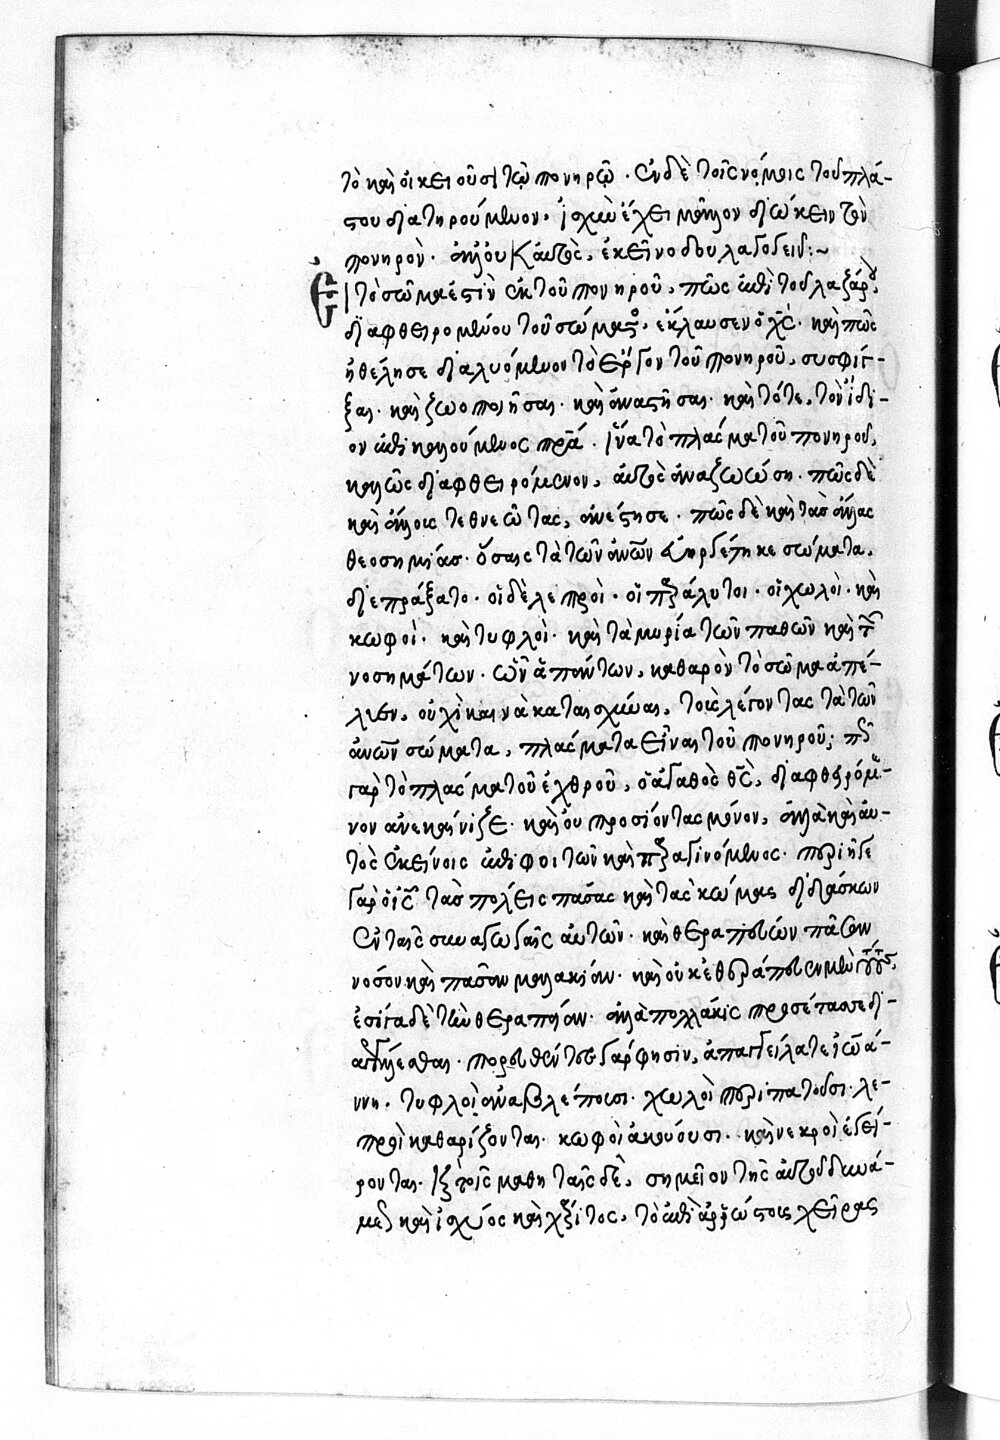 τὸ καὶ οἰκειοῦσι τῷ πονηρῷ· ἐν δὲ τοῖς νόμοις τοῦ πλά-
στου διατηρούμενον, ἰσχὺν ἔχει μᾶλλον διώκειν τὸν
πονηρὸν· ἀλλ' οὐκ αὐτὸς, ἐκεῖνο δουλαγωγεῖν:~
Εἰ τὸ σῶμά ἐστὶν ἐκ τοῦ πονηροῦ, πῶς ἐπὶ τοῦ λαζάρου
διαφθειρομένου τοῦ σώματος, ἔκλαυσεν ὁ χς· καὶ πῶς
ἠθέλησε διαλυόμενον τὸ ἔργον τοῦ πονηροῦ, συσφίγ-
ξαι· καὶ ζωοποιῆσαι· καὶ ἀναστῆσαι· καὶ τότε, τὸν ἴδι-
ον ἐπικαλούμενος πρα· ἵνα τὸ πλάσμα τοῦ πονηροῦ,
καλῶς διαφθειρόμενον, αὐτὸς ἀναζωώση· πῶς δὲ
καὶ ἄλλους τεθνεῶτας, ἀνέστησε· πῶς δὲ καὶ τὰς ἄλλας
θεοσημίας· ὅσαις τὰ τῶν ἀνων σώματα,
διεπράξατο· οἱ δὲ λεπροὶ· οἱ παράλυτοι· οἱ χωλοὶ· καὶ
κωφοὶ· καὶ τυφλοὶ· καὶ τὰ μυρία τῶν παθῶν καὶ τῶν
νοσημάτων· ὧν ἁπάντων, καθαρὸν τὸ σῶμα ἀπέ-
λυεν, οὐχ ἱκανὰ καταισχύναι, τοὺς λέγοντας τὰ τῶν
ἀνων σώματα, πλάσματα εἶναι τοῦ πονηροῦ; πῶς
γὰρ τὸ πλάσμα τοῦ ἐχθροῦ, ὁ ἀγαθὸς θς, διαφθειρόμε-
νον ἀνεκαίνιζε· καὶ οὐ προσιόντας μόνον, ἀλλὰ καὶ αὐ-
τὸς ἐκείνοις ἐπιφοιτῶν καὶ παραγινόμενος· περιῆγε
γὰρ ὁ ις τὰς πόλεις πάσας καὶ τὰς κώμας διδάσκων
ἐν ταῖς συναγωγαῖς αὐτῶν· καὶ θεραπεύων πᾶσαν
νόσον καὶ πᾶσαν μαλακίαν· καὶ οὐκ ἐθεράπευε μὲν
ἐσίγα δὲ τὴν θεραπείαν· ἀλλὰ πολλάκις προσέταττε δι-
αγγέλλεσθαι· πορευθέντες γάρ φησιν, ἀπαγγείλατε ἰωά-
ννη· τυφλοὶ ἀναβλέπουσι· χωλοὶ περιπατοῦσι· λε-
προὶ καθαρίζονται· κωφοὶ ἀκούουσι· καὶ νεκροὶ ἐγεί-
ρονται· τοῖς μαθηταῖς δὲ, σημεῖον τῆς αὐτοῦ δυνά-
μεως καὶ ἰσχύος καὶ χάριτος, τὸ ἐπὶ ἀρρώστοις χεῖρας